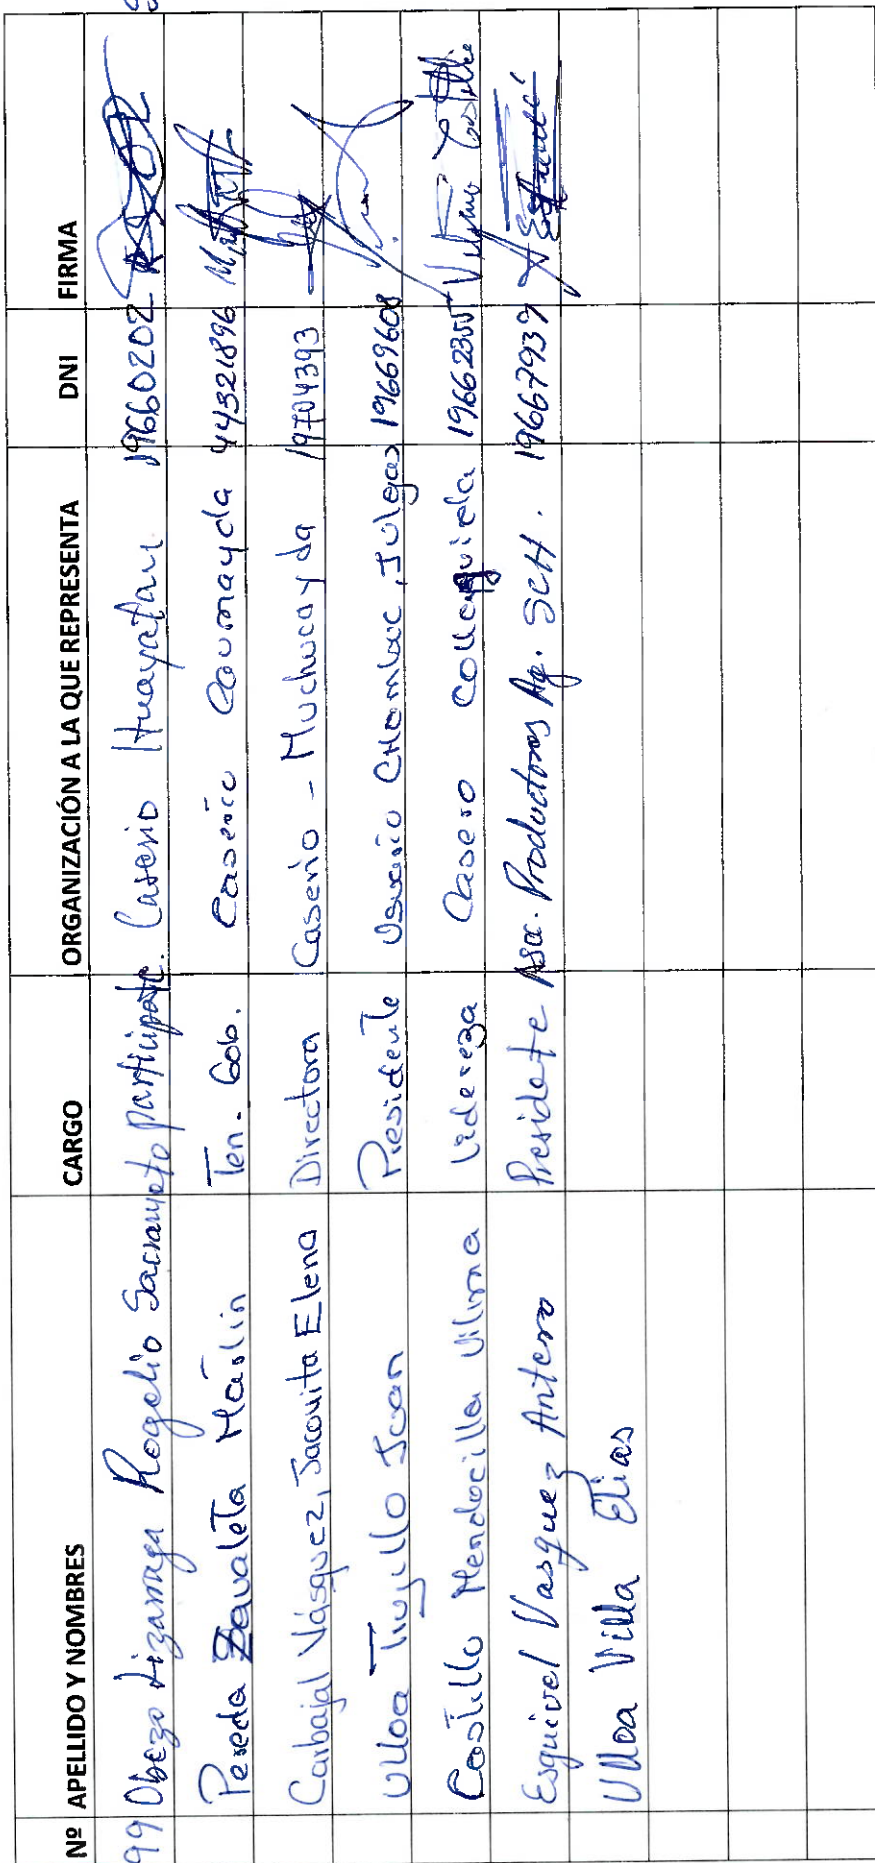 Nº APELLIDO Y NOMBRES CARGO ORGANIZACIÓN A LA QUE REPRESENTA DNI FIRMA
99 Obezo Lizarraga Rogelio Sacramento participate. Caserio Huayatan 19660202
Pereda Zavaleta Marlin Ten. Gob. Caserio Caumayda 44321896
Carbajal Vásquez, Jacovita Elena Directora Caserio - Muchucayda 19704393
Ulloa Trujillo Juan Presidente Usuario CHombac, Julgas 19669608
Castillo Mendocilla Vilma Lidereza Casero Collayguida Vilma Castillo
Esquivel Vasquez Antero Presidete Asoc. Productores Ag. SCH. 19667939 A Esquivel
Ulloa Villa Elias